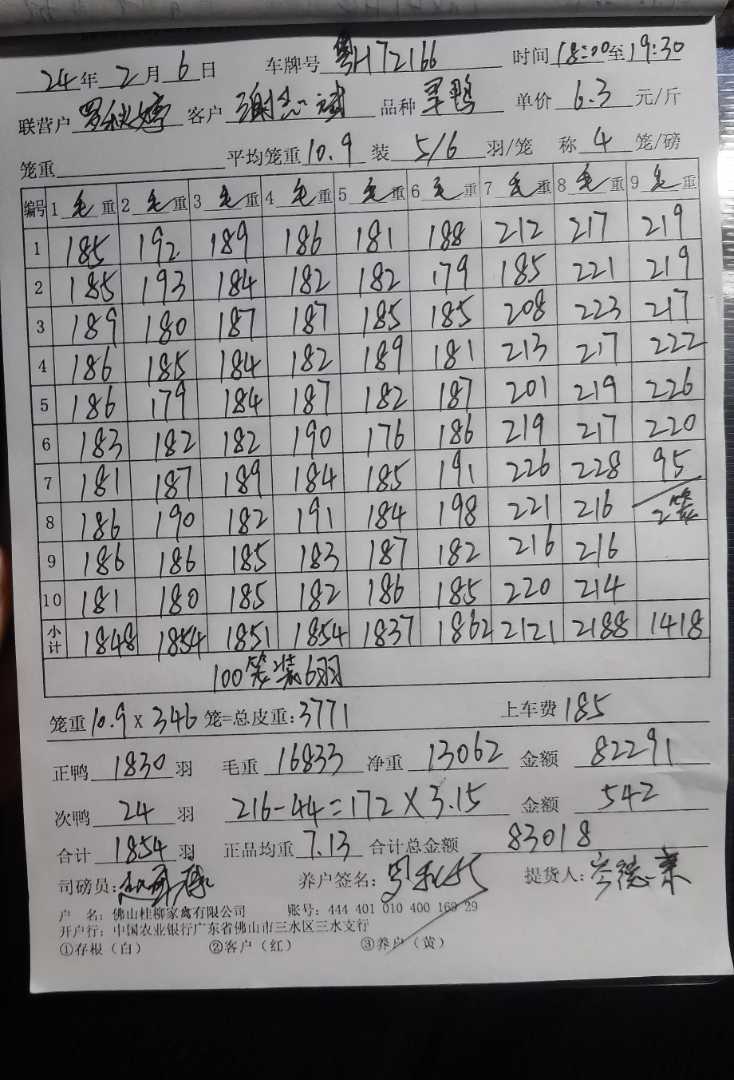 24年2月6日 车牌号 粤H72166 时间 18:00至19:30
联营户 罗秋婷 客户 谢志斌 品种 旱鸭 单价 6.3 元/斤
笼重 平均笼重 10.9 装 5/6 羽/笼 称 4 笼/磅
编号 1毛重 2毛重 3毛重 4毛重 5毛重 6毛重 7毛重 8毛重 9毛重
1 185 192 189 186 181 188 212 217 219
2 185 193 184 182 182 179 185 221 219
3 189 180 187 187 185 185 208 223 217
4 186 185 184 182 189 181 213 217 222
5 186 179 184 187 182 187 201 219 226
6 183 182 182 190 176 186 219 217 220
7 181 187 189 184 185 191 226 228 95
8 186 190 182 191 184 198 221 216 2笼
9 186 186 185 183 187 182 216 216
10 181 180 185 182 186 185 220 214
小计 1848 1854 1851 1854 1837 1862 2121 2188 1418
100笼装6羽
笼重 10.9 x 346 笼=总皮重:3771 上车费 185
正鸭 1830 羽 毛重 16833 净重 13062 金额 82291
次鸭 24 羽 216-44=172×3.15 金额 542
合计 1854 羽 正品均重 7.13 合计总金额 83018
司磅员: 养户签名: 提货人:
户 名: 佛山桂柳家禽有限公司 账号: 444 401 010 400 169 29
开户行: 中国农业银行广东省佛山市三水区三水支行
①存根(白) ②客户(红) ③养户(黄)